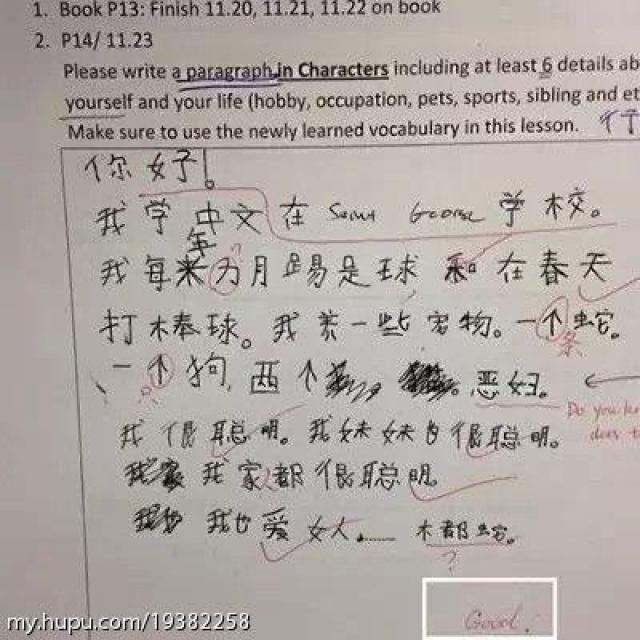 1. Book P13: Finish 11.20, 11.21, 11.22 on book
2. P14/ 11.23
Please write a paragraph in Characters including at least 6 details ab
yourself and your life (hobby, occupation, pets, sports, sibling and et
Make sure to use the newly learned vocabulary in this lesson.
你好!
我学中文在 George 学校。
年
我每 月踢足球和在春天
打棒球。我养一些宠物。一个蛇。
条
一个狗,两个 恶妇。
Do you k
does t
我很聪明。我妹妹也很聪明。
我家都很聪明。
我也爱女人……
?
Good!
my.hupu.com/19382258